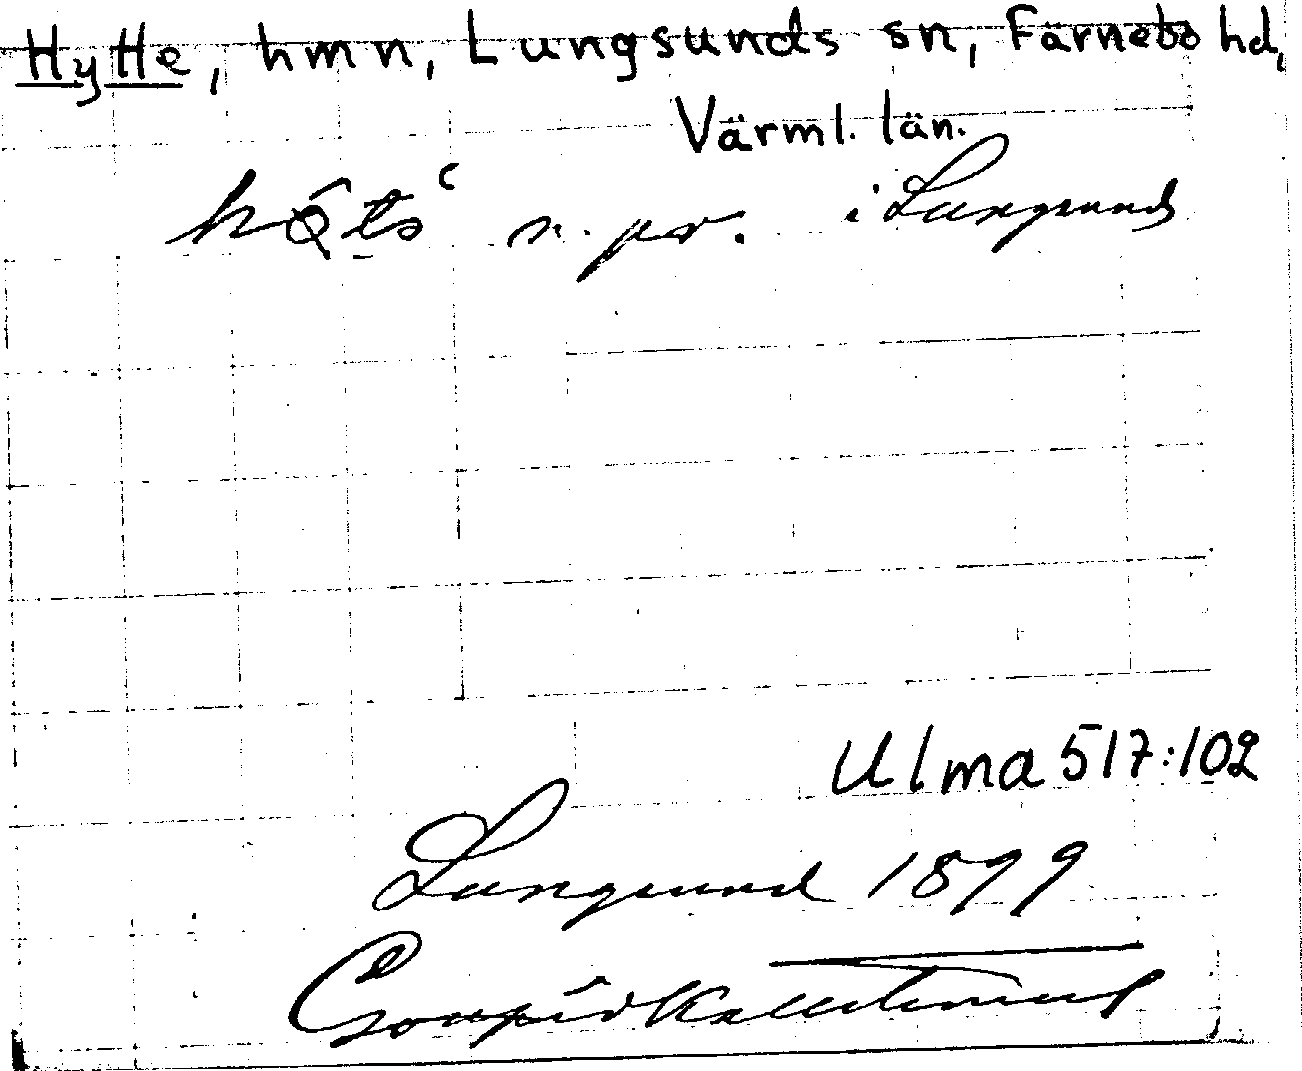 Hytte, hmn, Lungsunds sn, Färnebo hd,
Värml. län.
n. pr. i Lungsunds
Ulma 517:102
Lungsund 1899
Kallstenius